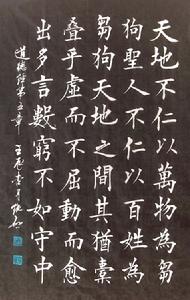 天地不仁以萬物為芻
狗聖人不仁以百姓為
芻狗天地之間其猶橐
乎虛而不屈動而愈
出多言數窮不如守中
道德經第五章